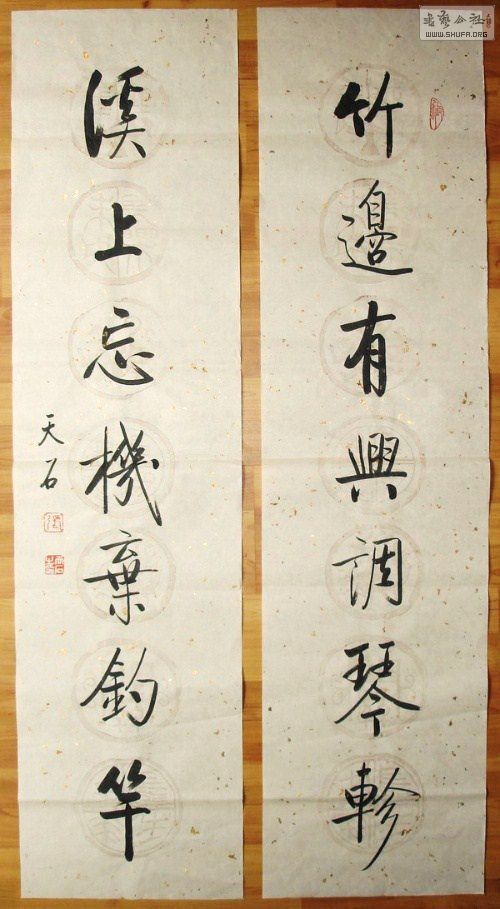 竹邊有興調琴軫
溪上忘機棄釣竿
天石
WWW.SHUFA.ORG